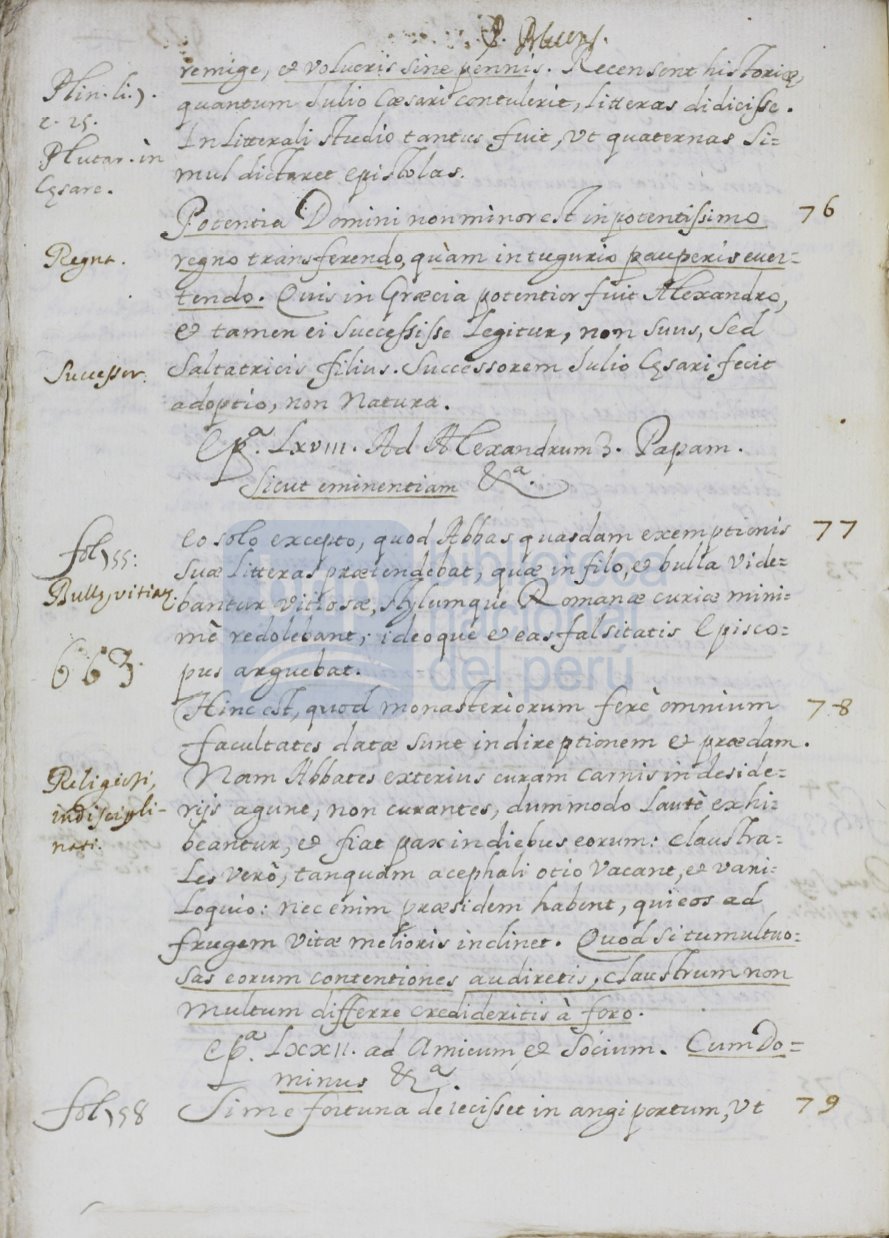 P. Blesens.
remige, et volucris sine pennis. Recensent historiæ,
Plin. li. 7.
c. 25.
quantum Julio Cæsari contulerit, litteras didicisse.
In litterali studio tantus fuit, vt quaternas si=
Plutar. in
Cęsare.
mul dictaret epistolas.
Potentia Domini non minor est in potentissimo 76
Regna.
regno transferendo, quàm in tugurio pauperis euer=
tendo. Quis in Græcia potentior fuit Alexandro,
et tamen ei successisse legitur, non suus, sed
Successor.
saltatricis filius. Successorem Julio Cęsari fecit
adoptio, non natura.
Epa. LXVIII. Ad Alexandrum 3. Papam.
Sicut eminentiam &a.
eo solo excepto, quod Abbas quasdam exemptionis 77
fol 155:
suæ litteras prætendebat, quæ in filo, et bulla vide=
Bullę vitiatę.
bantur vitiosæ, stylumque Romanæ curiæ mini=
mè redolebant; ideoque et eas falsitatis Episco=
663.
pus arguebat.
Hinc est, quod monasteriorum ferè omnium 78
facultates datæ sunt in direptionem et prædam.
Religiosi,
indiscipli-
nati.
Nam Abbates exterius curam carnis in deside=
rijs agunt, non curantes, dummodo lautè exhi=
beantur, et fiat pax in diebus eorum: claustra=
les verò, tanquam acephali otio vacant, et vani=
loquio: nec enim præsidem habent, qui eos ad
frugem vitæ melioris inclinet. Quod si tumultuo=
sas eorum contentiones audiretis, claustrum non
multum differre credideritis à foro.
Epa. LXXII. ad Amicum et Socium. Cum Do=
minus &a.
fol 158
Si me fortuna deiecisset in angiportum, vt 79
biblioteca
nacional
del perú